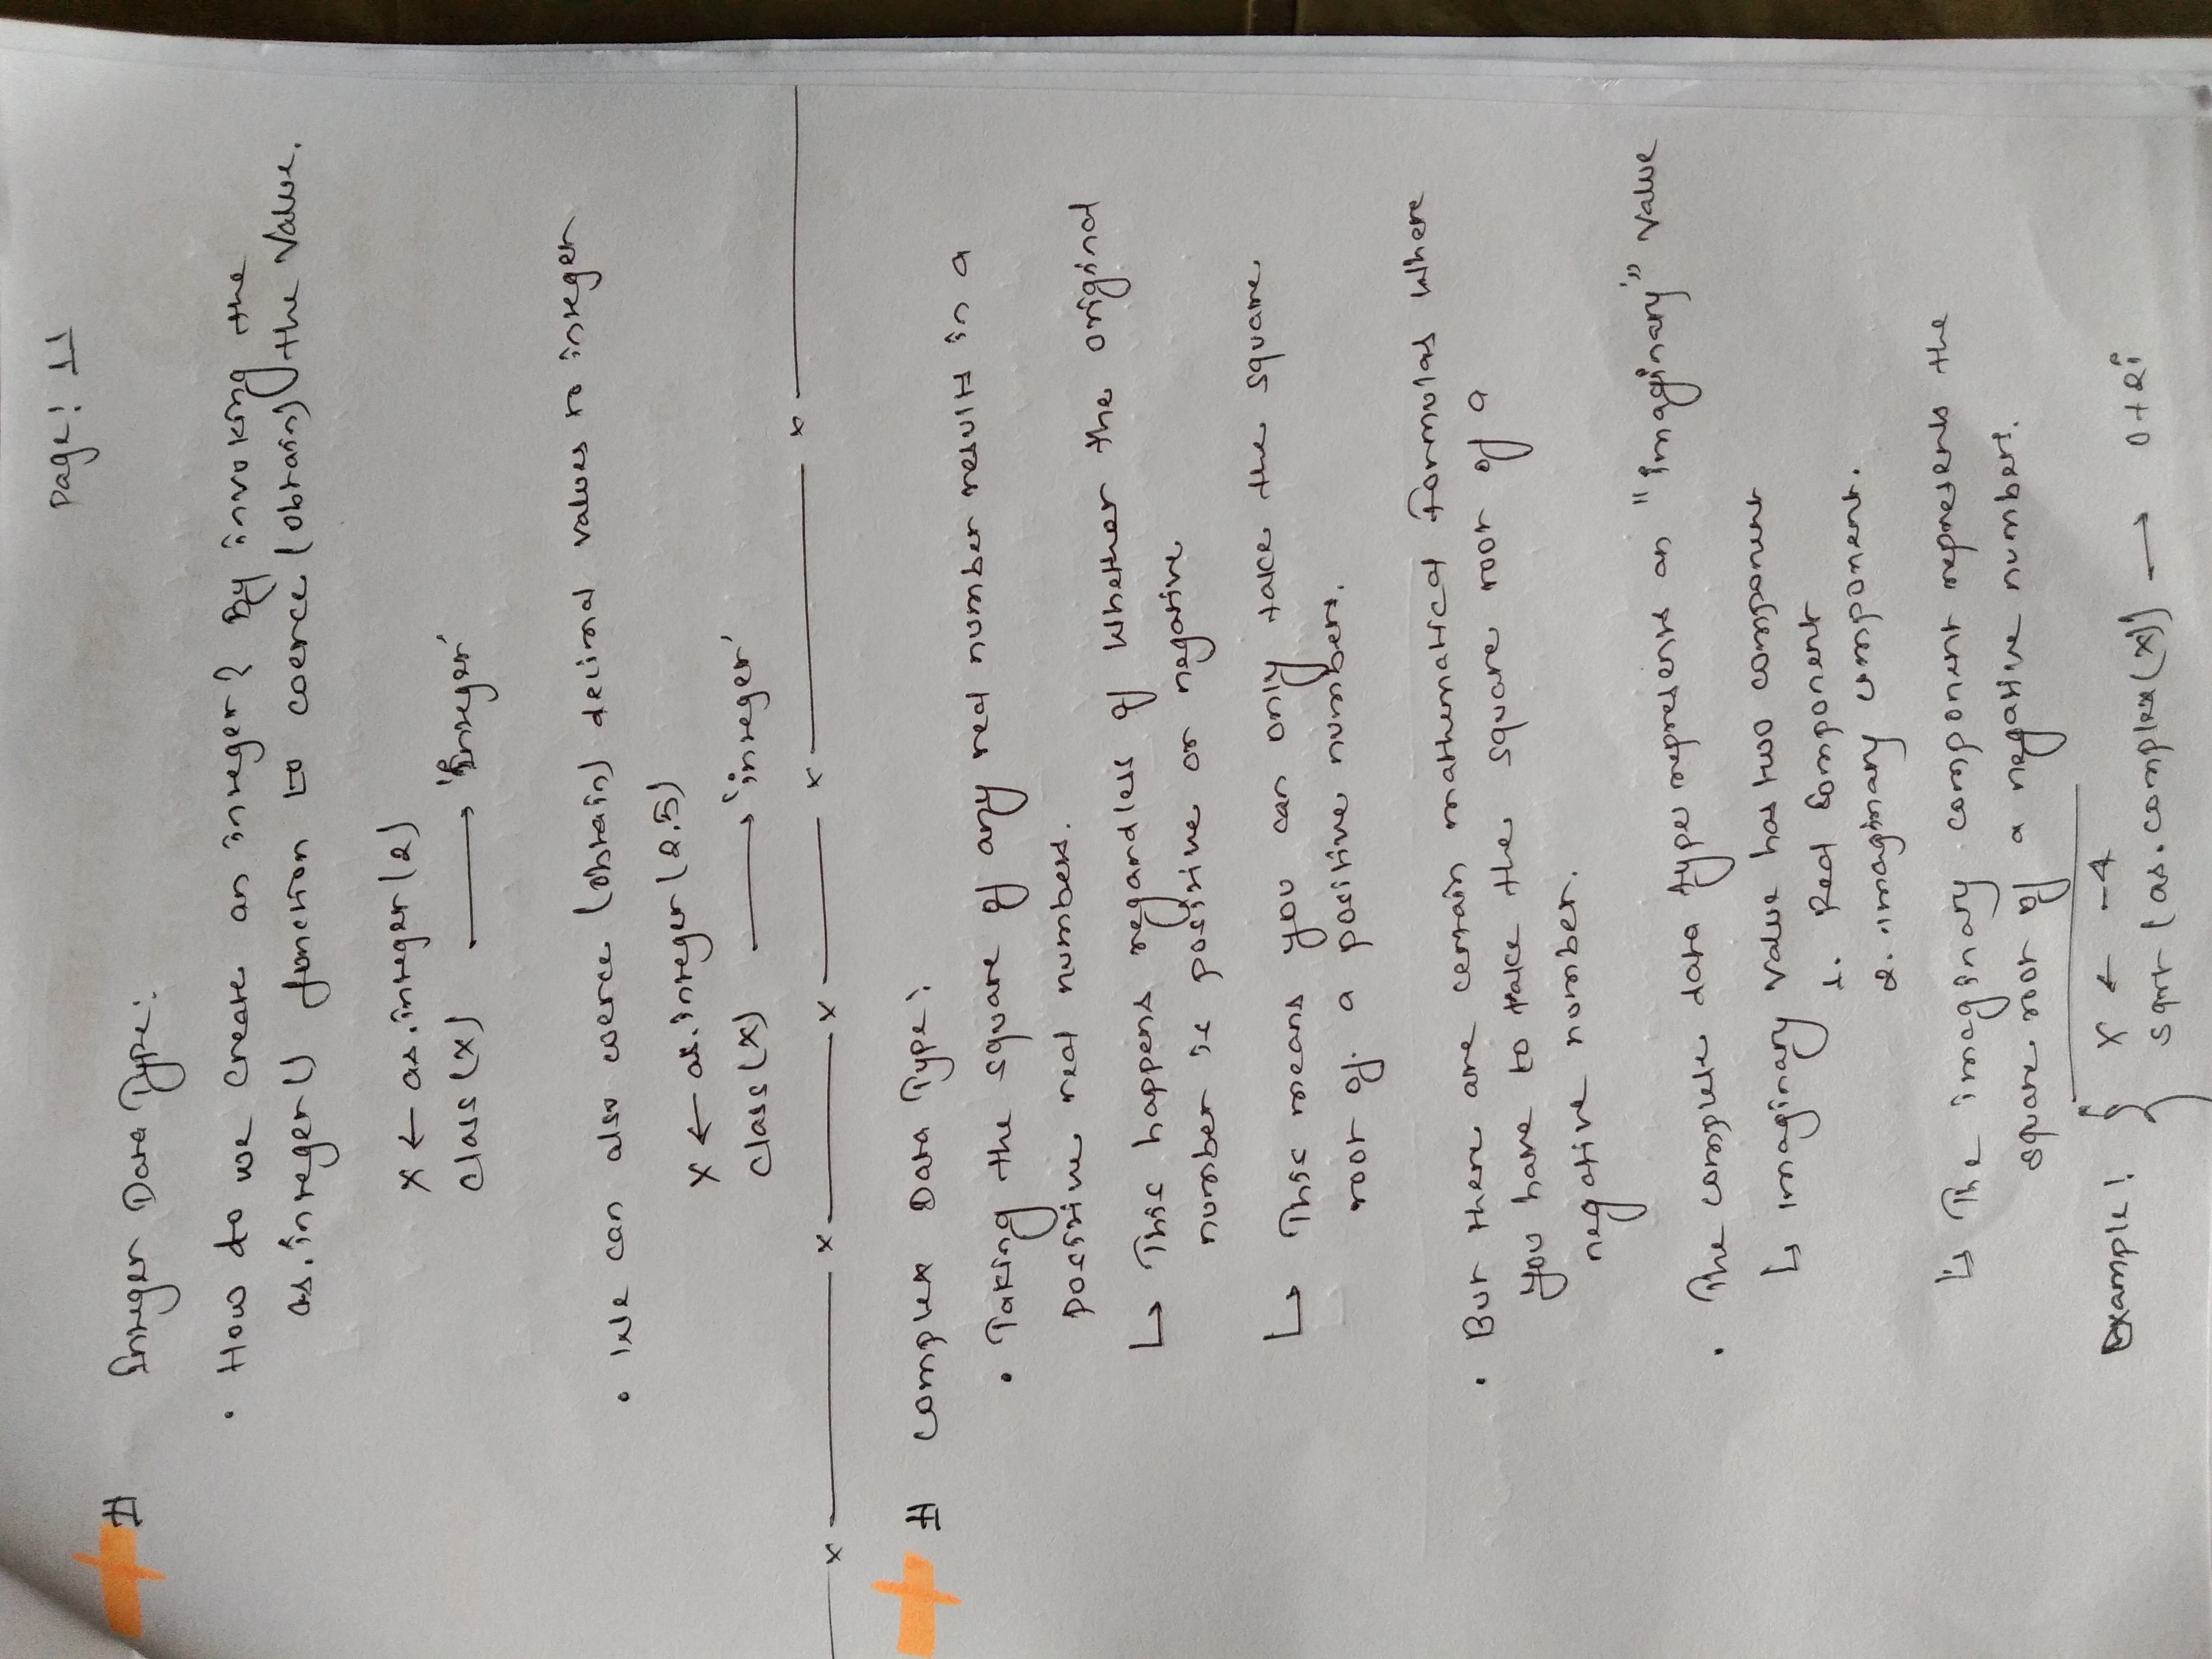 Page: 11
# Integer Data Type:
• How do we create an integer? By invoking the
as.integer() function to coerce (obtain) the value.
x ← as.integer(2)
class(x) → 'Integer'
• We can also coerce (obtain) decimal values to integer
x ← as.integer(2.5)
class(x) → 'integer'
# Complex Data Type:
• Taking the square of any real number results in a
positive real numbers.
↳ This happens regardless of whether the original
number is positive or negative
↳ This means you can only take the square
root of a positive numbers.
• But there are certain mathematical formulas where
you have to take the square root of a
negative number.
• The complete data type represents an "imaginary" value
↳ imaginary value has two component
1. Real Component
2. imaginary component.
↳ The imaginary component represents the
square root of a negative numbers.
Example: { x ← -4
sqrt(as.complex(x)) → 0+2i